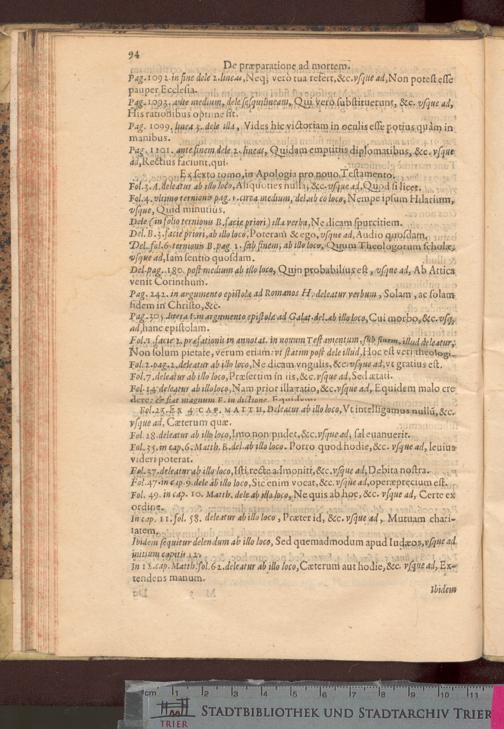 94
De præparatione ad mortem.
Pag. 1092. in fine dele 2. lineas, Neq; verò tua refert, &c. vsque ad, Non potest esse
pauper Ecclesia.
Pag. 1093. ante medium, dele sesquilineam, Qui verò substituerunt, &c. vsque ad,
His rationibus optime sit.
Pag. 1099. linea 3. dele illa, Vides hic victoriam in oculis esse potius quàm in
manibus.
Pag. 1101. ante finem dele 2. lineas, Quidam emptitijs diplomatibus, &c. vsque
ad, Rectius faciunt, qui.
Ex sexto tomo, in Apologia pro nouo Testamento.
Fol. 3. A. deleatur ab illo loco, Aliquoties nulla; &c. vsque ad, Quod si licet.
Fol. 4. vltimo ternionis pag. 1. circa medium, del. ab eo loco, Nempe ipsum Hilarium,
vsque, Quid minutius.
Dele (in folio ternionis B. facie priori) illa verba, Ne dicam spurcitiem.
Del. B. 3. facie priori, ab illo loco, Poteram & ego, vsque ad, Audio quosdam.
Del. fol. 6. ternionis B. pag. 1. sub finem, ab illo loco, Quum Theologorum scholæ,
vsque ad, Iam sentio quosdam.
Del. pag. 180. post medium ab illo loco, Quin probabilius est, vsque ad, Ab Attica
venit Corinthum.
Pag. 242. in argumento epistolæ ad Romanos H. deleatur verbum, Solam, ac solam
fidem in Christo, &c.
Pag. 305. litera t. in argumento epistolæ ad Galat. del. ab illo loco, Cui morbo, &c. vsq;
ad, hanc epistolam.
Fol. 1. facie 2. præfationis in annotat. in nouum Testamentum, sub finem, illud deleatur,
Non solum pietate, verum etiam: vt statim post dele illud, Hoc est veri theologi.
Fol. 2. pag. 2. deleatur ab illo loco, Ne dicam vngulis, &c. vsque ad, vt gratius est.
Fol. 7. deleatur ab illo loco, Præsertim in iis, &c. vsque ad, Sed ætati.
Fol. 14. deleatur ab illo loco, Nam prior illa ratio, &c. vsque ad, Equidem malo cre
dere: & fiat magnum E. in dictione, Equidem.
Fol. 25. EX 4. CAP. MATTH. Deleatur ab illo loco, Vt intelligamus nullũ, &c.
vsque ad, Cæterum quæ.
Fol. 28. deleatur ab illo loco, Imo non pudet, &c. vsque ad, sal euanuerit.
Fol. 35. in cap. 6. Matth. B. del. ab illo loco. Porro quod hodie, &c. vsque ad, leuius
videri poterat.
Fol. 37. deleatur ab illo loco, Isti recte admoniti, &c. vsque ad, Debita nostra.
Fol. 47. in cap. 9. dele ab illo loco, Sic enim vocat, &c. vsque ad, operæprecium est.
Fol. 49. in cap. 10. Matth. dele ab illo loco, Ne quis ab hoc, &c. vsque ad, Certe ex
ordine.
In cap. 11. fol. 58. deleatur ab illo loco, Præter id, &c. vsque ad, Mutuam chari-
tatem.
Ibidem sequitur delendum ab illo loco, Sed quemadmodum apud Iudæos, vsque ad
initium capitis 12.
In 12. cap. Matth. fol. 62. deleatur ab illo loco, Cæterum aut hodie, &c. vsque ad, Ex-
tendens manum.
Ibidem
cm 1 2 3 4 5 6 7 8 9 10 11
STADTBIBLIOTHEK UND STADTARCHIV TRIER
TRIER